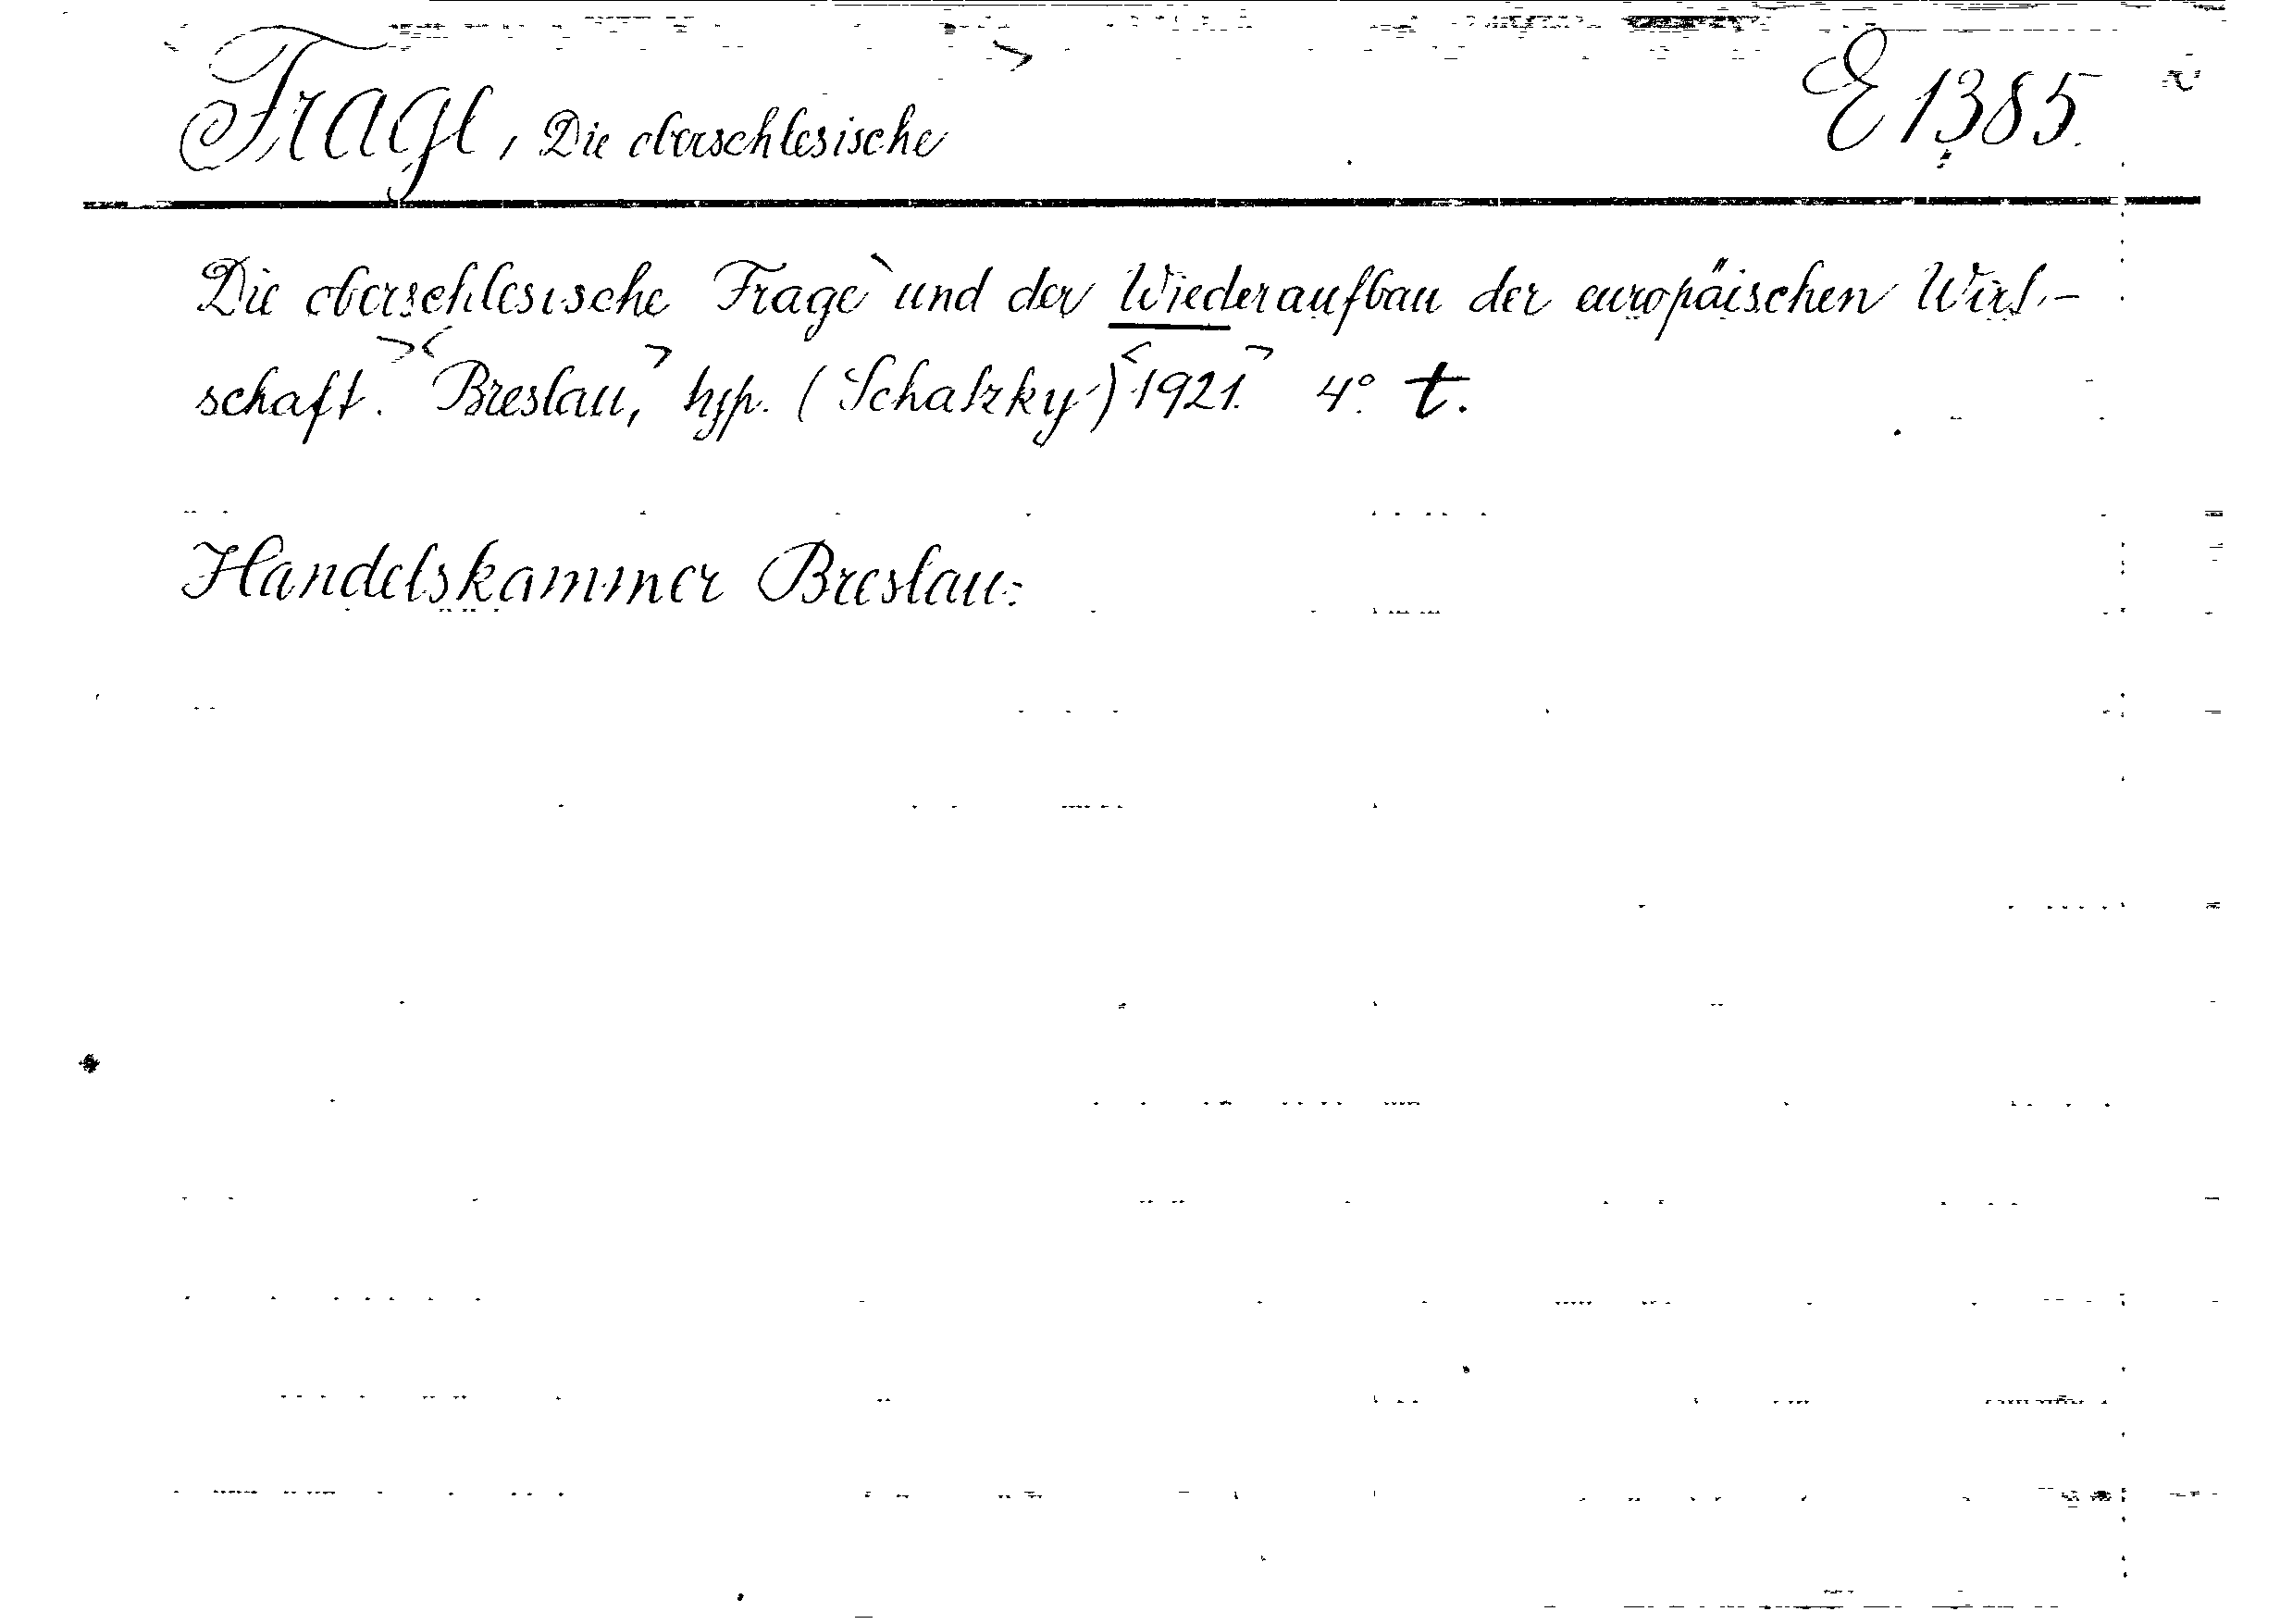 Frage, Die oberschlesische E 1385.
Die oberschlesische Frage und der Wiederaufbau der europäischen Wirt-
schaft. Breslau, typ. (Schatzky) 1921. 4° t.
Handelskammer Breslau.